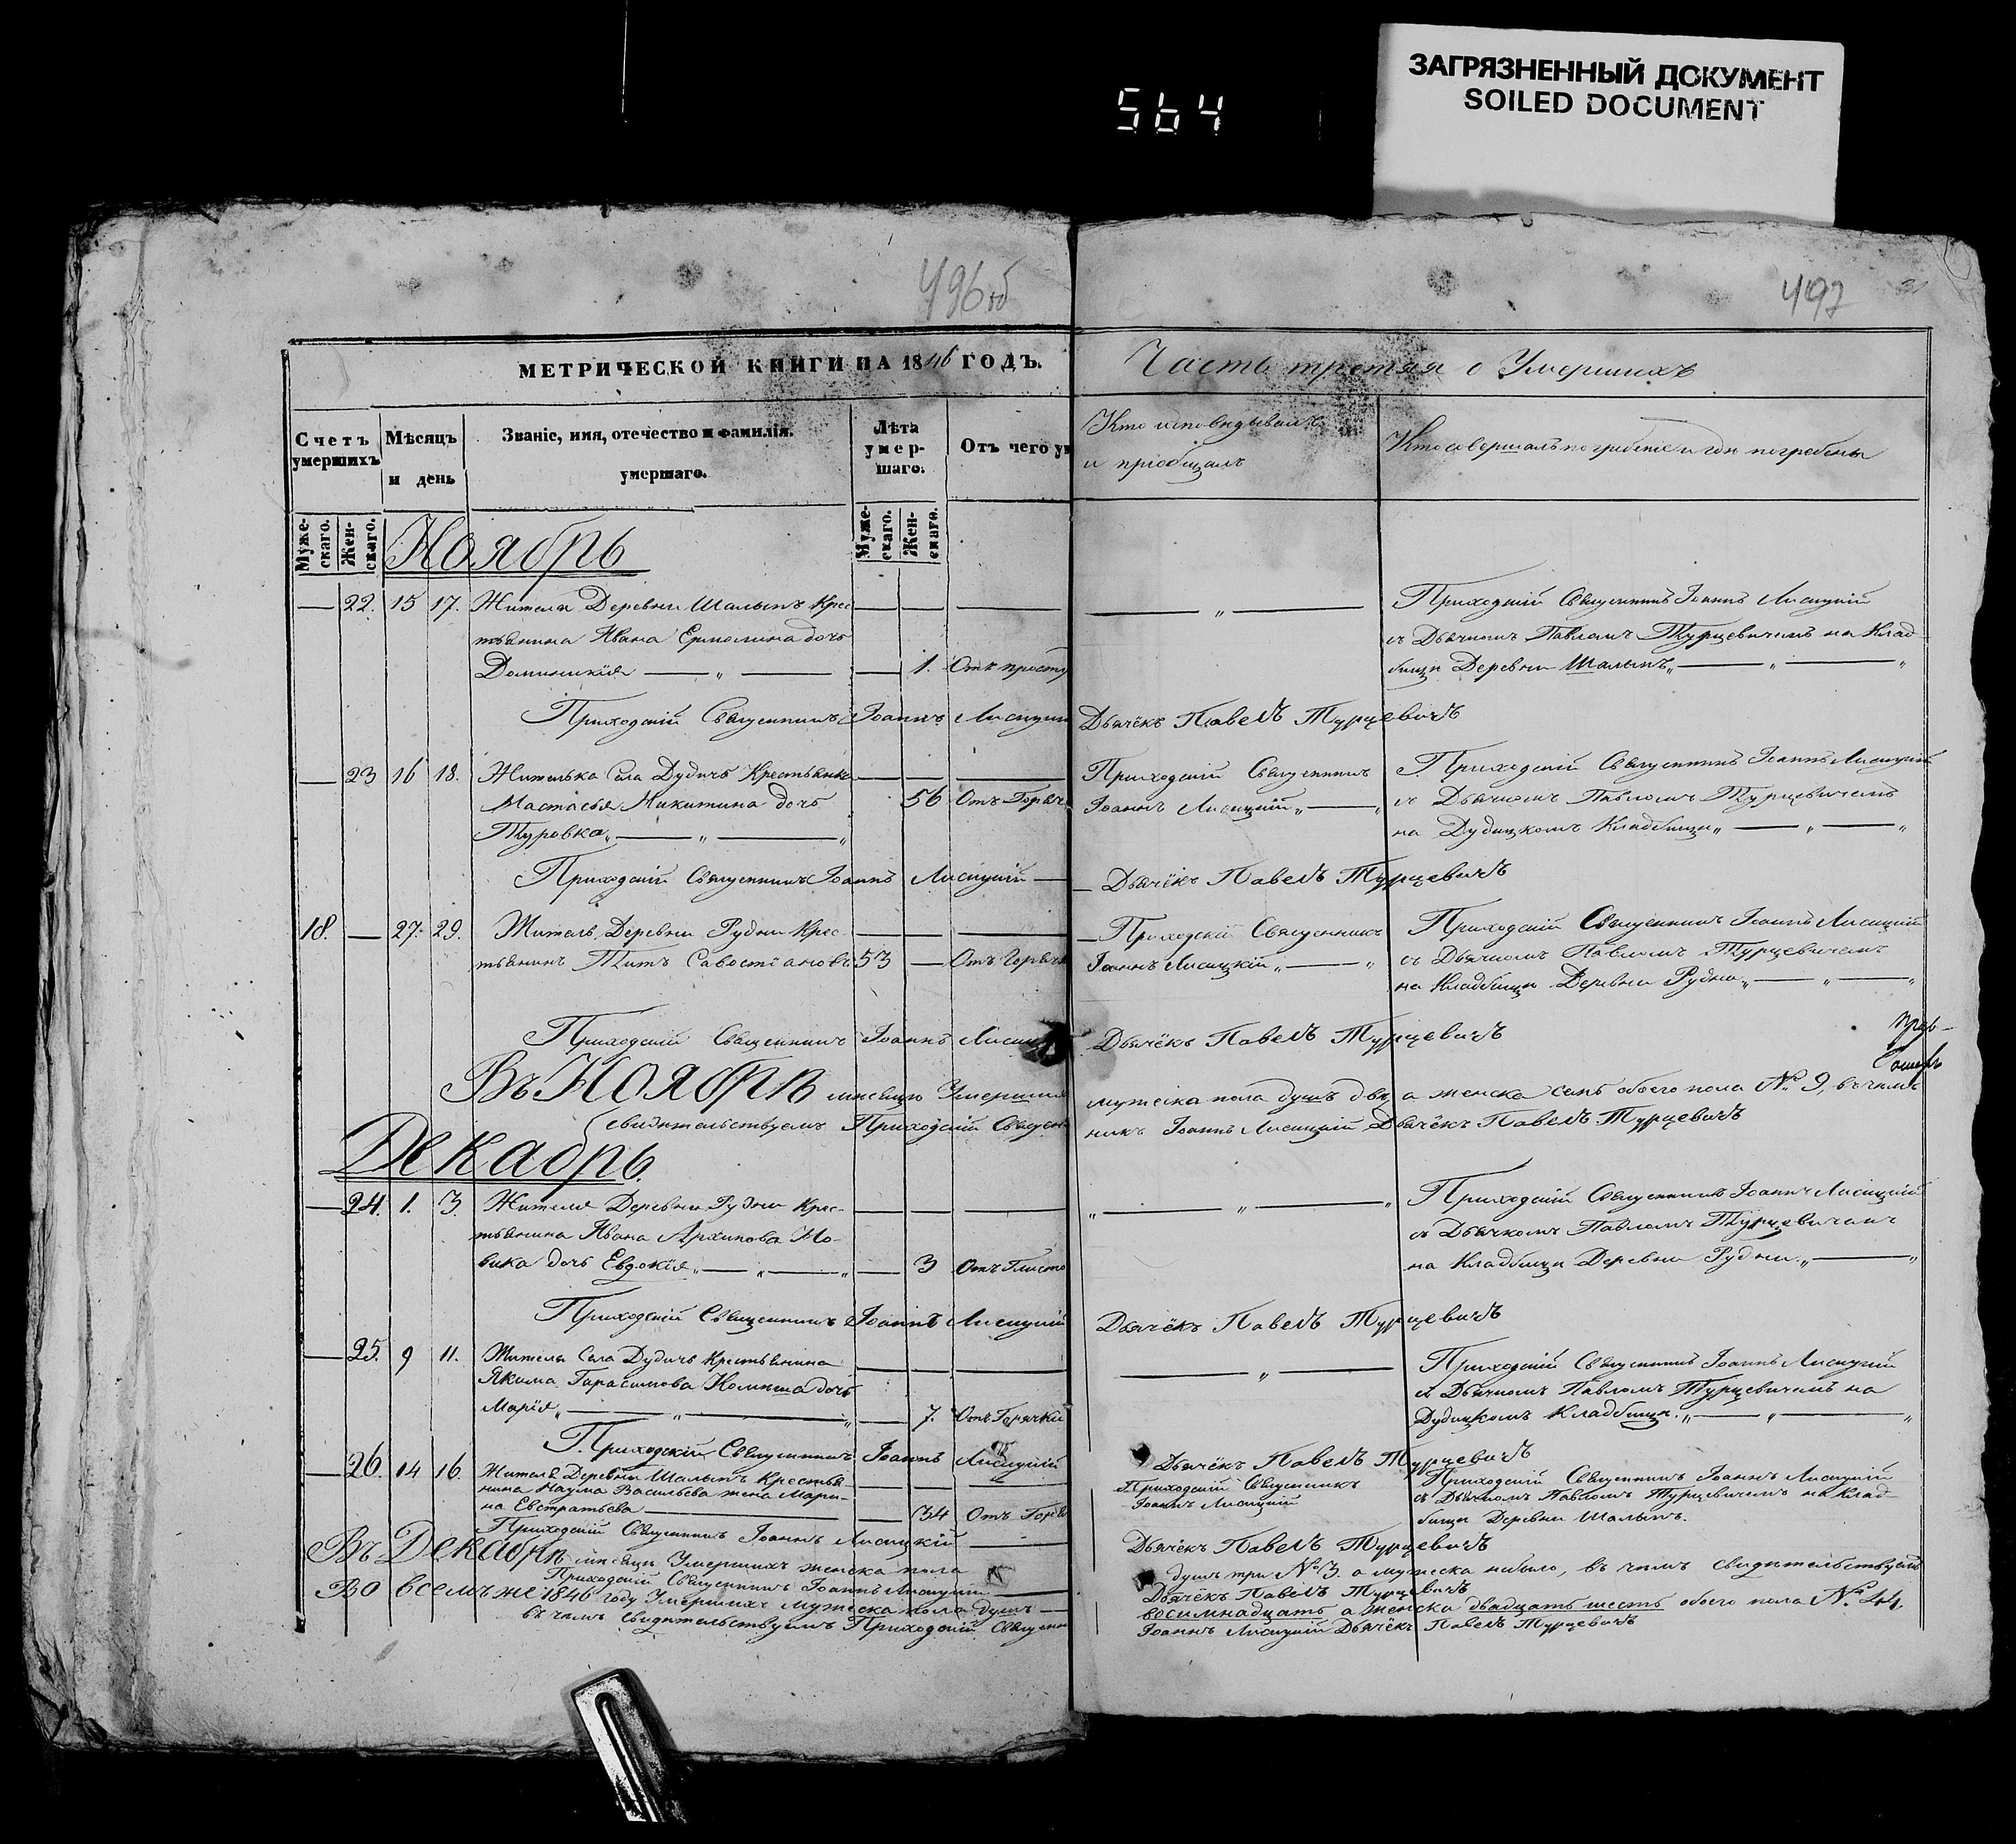 564
ЗАГРЯЗНЕННЫЙ ДОКУМЕНТ
SOILED DOCUMENT
496об
497
МЕТРИЧЕСКОЙ КНИГИ НА 1846 ГОДЪ.
Часть третяя о Умершихъ
Счетъ умершихъ
Мѣсяцъ и день
Званіе, имя, отечество и фамилія. умершаго.
Лѣта умер-шаго.
Отъ чего ум
Кто исповѣдывалъ
и пріобщалъ
Кто совершалъ погребеніе и гдѣ погребены
Муже-скаго.
Жен-скаго.
Муже-скаго.
Жен-скаго.
Ноябрь
22. 15 17. Жителя Деревни Шалыпъ Крес
тьянина Ивана Ермолина дочь
Доминикія 1. Отъ просту
Приходскій Священникъ Іоаннъ Лисицкій
съ Дьячкомъ Павломъ Турцевичемъ на Клад
бищѣ Деревни Шалыпъ
Приходскій Священникъ Іоаннъ Лисицкі Дьячёкъ Павелъ Турцевичъ
23 16 18. Жителька Села Дудичъ Крестьянка
Настасья Никитина дочь 56 Отъ Горяч
Туровка
Приходскій Священникъ
Іоаннъ Лисицкій
Приходскій Священникъ Іоаннъ Лисицкій
съ Дьячкомъ Павломъ Турцевичемъ
на Дудицкомъ Кладбищѣ
Приходскій Священникъ Іоаннъ Лисицкій Дьячёкъ Павелъ Турцевичъ
18. 27. 29. Житель Деревни Рудни Крес
тьянинъ Титъ Савостіановъ 53 Отъ Горячк
Приходскій Священникъ
Іоаннъ Лисицкій
Приходскій Священникъ Іоаннъ Лисицкій
съ Дьячкомъ Павломъ Турцевичемъ
на Кладбищѣ Деревни Рудни
Приходскій Священникъ Іоаннъ Лисиц Дьячёкъ Павелъ Турцевичъ
Въ Ноябрѣ мѣсяцѣ Умерших мужеска пола душъ двѣ, а женска семь обоего пола № 9, въ чемъ
свидѣтельствуемъ Приходскій Священ никъ Іоаннъ Лисицкій Дьячёкъ Павелъ Турцевичъ
Декабрь.
24. 1. 3. Жителя Деревни Рудни Крес-
тьянина Ивана Архипова Но-
вика дочь Евдокія 3 Отъ Глисто
Приходскій Священникъ Іоаннъ Лисицкій
съ Дьячкомъ Павломъ Турцевичемъ
на Кладбищѣ Деревни Рудни
Приходскій Священникъ Іоаннъ Лисицкій Дьячёкъ Павелъ Турцевичъ
25. 9 11. Жителя Села Дудичъ Крестьянина
Якима Гарасимова дочь
Марія 7. Отъ Горячки
Приходскій Священникъ Іоаннъ Лисицкій
съ Дьячкомъ Павломъ Турцевичемъ на
Дудицкомъ Кладбищѣ.
Приходскій Священникъ Іоаннъ Лисицкій Дьячёкъ Павелъ Турцевичъ
26. 14 16. Жителя Деревни Шалыпъ Крестья
нина Наума Васильева жена Мари-
на Евстратьева 34 Отъ Горя
Приходскій Священникъ
Іоаннъ Лисицкій
Приходскій Священникъ Іоаннъ Лисицкій
съ Дьячкомъ Павломъ Турцевичемъ на Клад
бищѣ Деревни Шалыпъ.
Приходскій Священникъ Іоаннъ Лисицкій Дьячёкъ Павелъ Турцевичъ
Въ Декабрѣ мѣсяцѣ Умершихъ женска пола душъ три № 3. а мужеска небыло, въ чемъ свидѣтельствуемъ
Приходскій Священникъ Іоаннъ Лисицкій Дьячёкъ Павелъ Турцевичъ
Во всемъ же 1846 году Умершихъ мужеска пола душъ восимнадцать а женска двадцать шесть обоего пола № 44,
въ чемъ свидѣтельствуемъ Приходскій Священ Іоаннъ Лисицкій Дьячёкъ Павелъ Турцевичъ